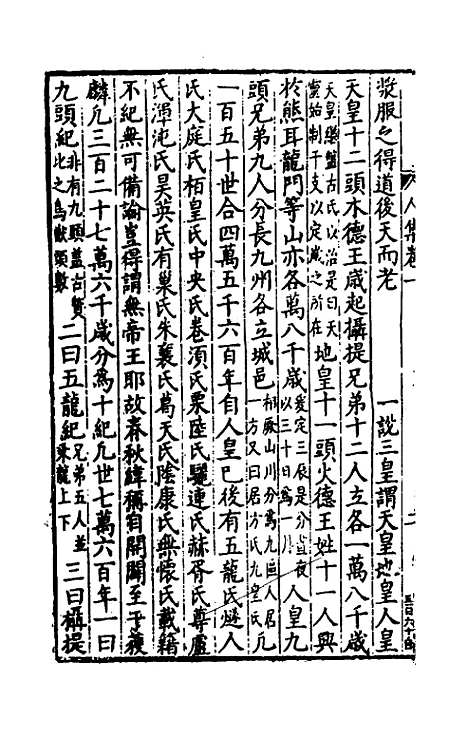 漿服之得道後天而老　一說三皇謂天皇地皇人皇
天皇十二頭木德王歲起攝提兄弟十二人立各一萬八千歲
天皇繼盤古氏以治是曰天
靈始制干支以定歲之所在
地皇十一頭火德王姓十一人興
於熊耳龍門等山亦各萬八千歲
爰定三辰是分晝夜
以三十日為一月
人皇九
頭兄弟九人分長九州各立城邑
相厥山川分為九區人居
一方又曰居方氏九皇氏
凡
一百五十世合四萬五千六百年自人皇已後有五龍氏燧人
氏大庭氏栢皇氏中央氏卷須氏栗陸氏驪連氏赫胥氏尊盧
氏渾沌氏昊英氏有巢氏朱襄氏葛天氏陰康氏無懷氏載籍
不紀無可備論豈得謂無帝王耶故春秋緯稱自開闢至于獲
麟凡三百二十七萬六千歲分為十紀凡世七萬六百年一曰
九頭紀
非有九頭蓋古質
比之鳥獸頭數
二曰五龍紀
兄弟五人並
乘龍上下
三曰攝提
人集卷一